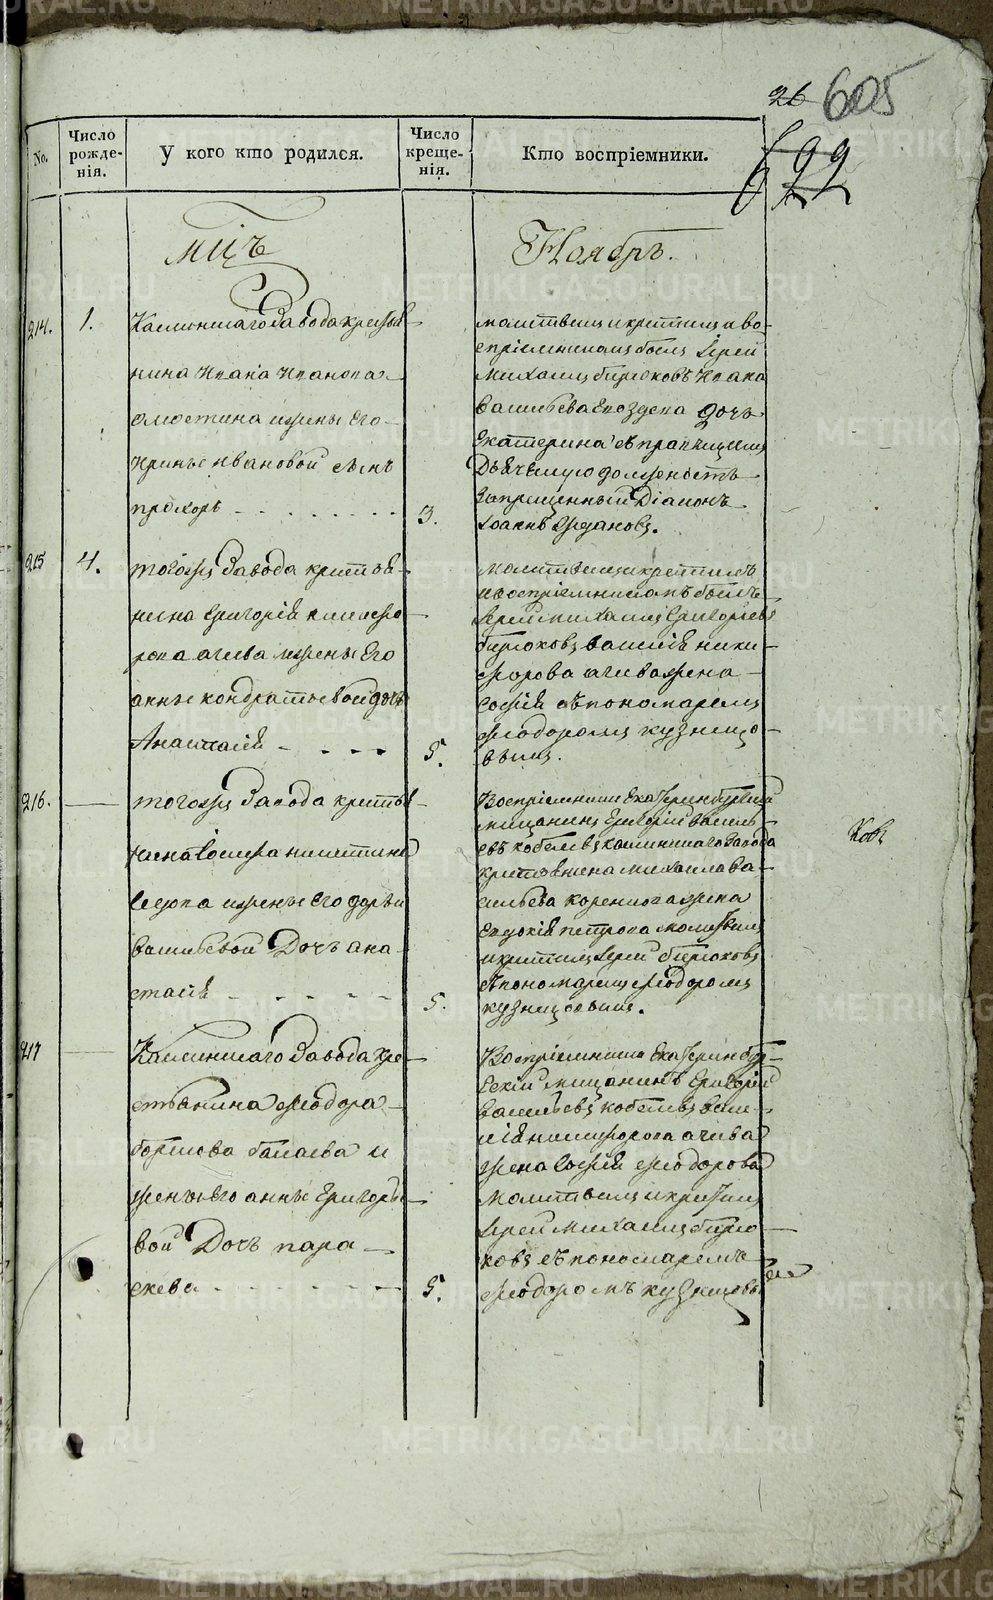 26 605
No.
Число рожде-нія.
У кого кто родился.
Число креще-нія.
Кто воспріемники.
699
мцъ
Ноябрь.
214.
1.
Каслинскаго завода крестья-
нина Ивана Иванова
жены его
Ирины Ивановой сынъ
прохоръ
3.
молитвилъ и крестилъ а во-
спріемникомъ былъ Іерей
Михаилъ Бирюковъ Ивана
Васильева дочь
Екатерина съ
должность
Запрещенный Діаконъ
Іоаннъ
215
4.
тогожъ завода крестья-
нина Григорія Никифо-
рова ачева жены его
анны кондратьевой дочь
Анастасія
5.
молитвилъ и крестилъ
и воспріемникомъ былъ
Іерей михаилъ Григорьевъ
бирюковъ василія ники-
форова ачева жена
софія съ пономаремъ
феодоромъ кузнецо-
вымъ.
216.
тогожъ завода крестья-
нина
жены его дарьи
васильевой Дочь ана-
стасія
5.
Воспріемники Екатеринбургскій
мещанинъ Григорій василь-
евъ кобелевъ каслинскаго завода
крестьянина михаила ва-
сильева жена
евдокія петрова молитвилъ
и крестилъ Іерей бирюковъ
съ пономаремъ феодоромъ
кузнецовымъ.
217
Каслинскаго завода кре-
стьянина феодора
борисова и
жены его анны Григорье-
вой Дочь пара-
скева
5.
Воспріемники Екатеринбур-
скій мещанинъ Григорій
васильевъ кобелевъ васи-
лія никифорова ачева
жена софія феодорова
молитвилъ и крестилъ
Іерей михаилъ бирю-
ковъ съ пономаремъ
феодоромъ кузнецовы-
METRIKI.GASO-URAL.RU